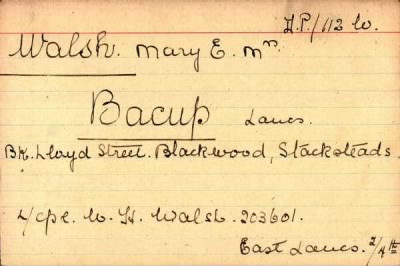 D.P./112 W.
Walsh. Mary E. Mrs.
Bacup Lancs.
Bk. Lloyd Street. Blackwood, Stacksteads.
L/cpl. W. H. Walsh. 203601.
East Lancs. 2/4th